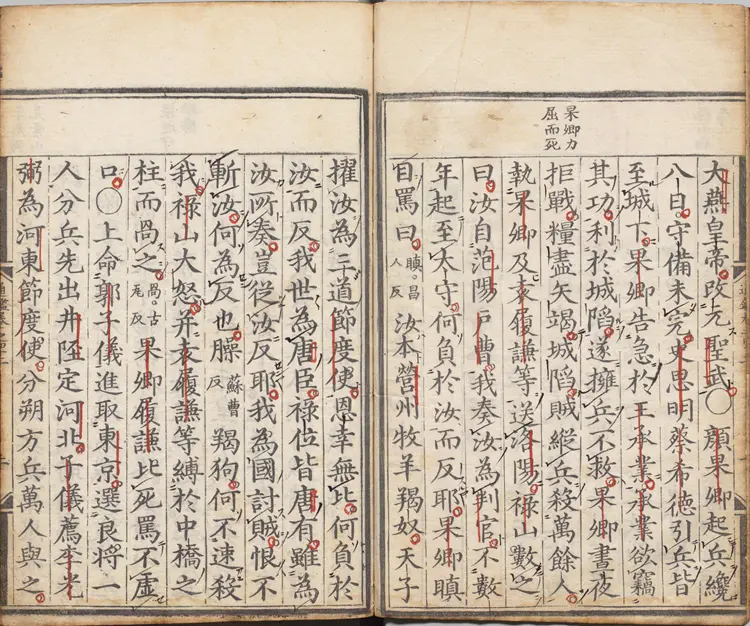 杲卿力
屈而死
大燕皇帝改元聖武〇顏杲卿起兵纔
八日守備未完史思明蔡希德引兵皆
至城下杲卿告急於王承業承業欲竊
其功利於城陷遂擁兵不救杲卿晝夜
拒戰糧盡矢竭城陷賊縱兵殺萬餘人
執杲卿及袁履謙等送洛陽祿山數之
曰汝自范陽戶曹我奏汝為判官不數
年起至太守何負於汝而反耶杲卿瞋
目罵曰瞋昌人反汝本營州牧羊羯奴天子
擢汝為三道節度使恩幸無比何負於
汝而反我世為唐臣祿位皆唐有雖為
汝所奏豈從汝反耶我為國討賊恨不
斬汝何為反也臊蘇曹反羯狗何不速殺
我祿山大怒并袁履謙等縛於中橋之
柱而咼之咼古瓦反杲卿履謙比死罵不虛
口〇上命郭子儀進取東京選良將一
人分兵先出井陘定河北子儀薦李光
弼為河東節度使分朔方兵萬人與之